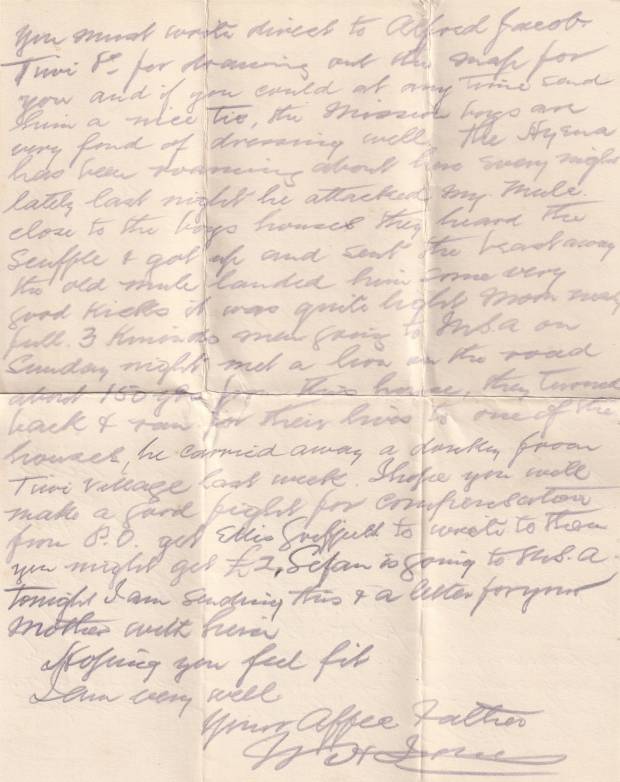 You must write direct to Alfred Jacob.
Tiwi Rd. for drawing out the map for
you and if you could at any time send
him a nice Tie, the Mission boys are
very fond of dressing well. the Hyena
has been roaming about here every night
lately last night he attacked my Mule.
close to the boys houses they heard the
scuffle & got up and sent the beast away
the old mule landed him some very
good kicks it was quite light Moon nearly
full. 3 men going to M.S.A on
Sunday night met a lion on the road
about 150 yds from this house, they turned
back & ran for their lives to one of the
houses, he carried away a donkey from
Tiwi Village last week. I hope you will
make a good fight for compensation
from P.O. get Ellis to write to them
you might get £2, Sefan is going to M.S.A.
tonight I am sending this & a letter for your
Mother with him
Hoping you feel fit
I am very well
Your Affec Father